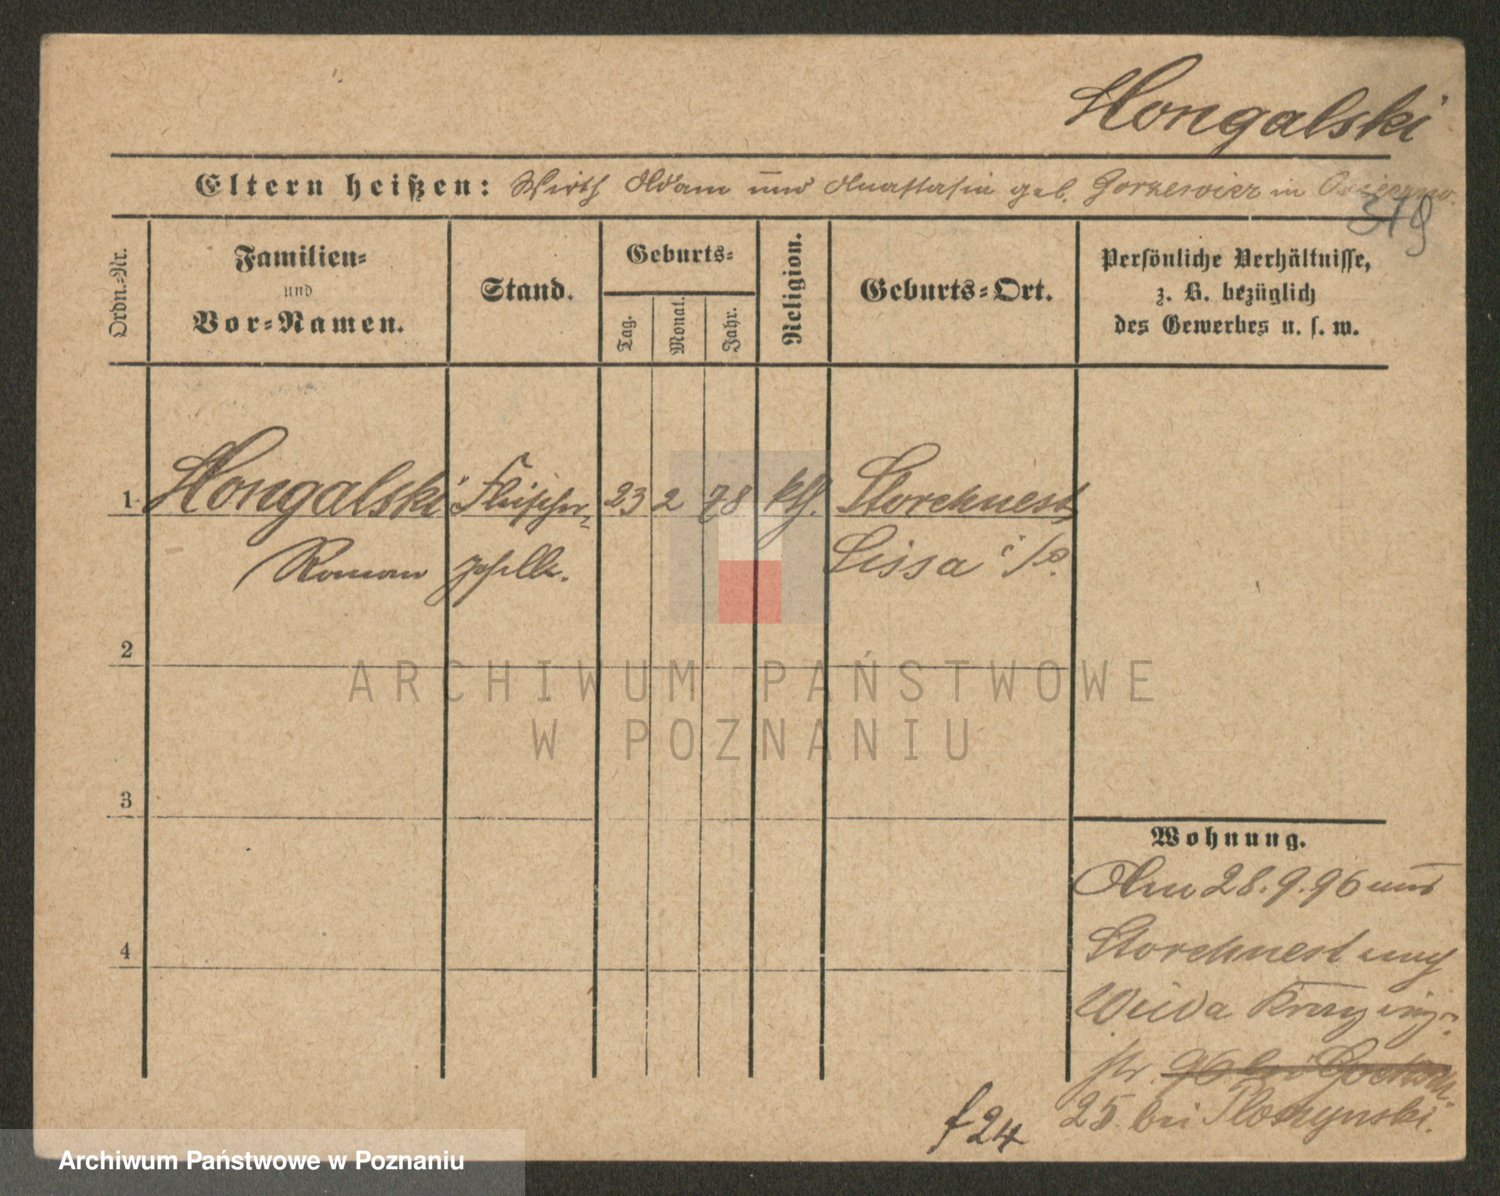 Hongalski
Eltern heißen: Wirth Adam und Anastasia geb. Gorzewicz in
319
Ordn.-Nr.
Familien-
und
Vor-Namen.
Stand.
Geburts-
Tag.
Monat.
Jahr.
Religion.
Geburts-Ort.
Persönliche Verhältnisse,
z. B. bezüglich
des Gewerbes u. s. w.
1. Hongalski Fleischer- 23 2 78 kth. Storchnest,
Roman geselle. Lissa i/P.
2
ARCHIWUM PAŃSTWOWE
W POZNANIU
3
4
Wohnung.
Am 28.9.96 aus
Storchnest nach
Wilda
str. 96 bei
25 bei
f 24
Archiwum Państwowe w Poznaniu